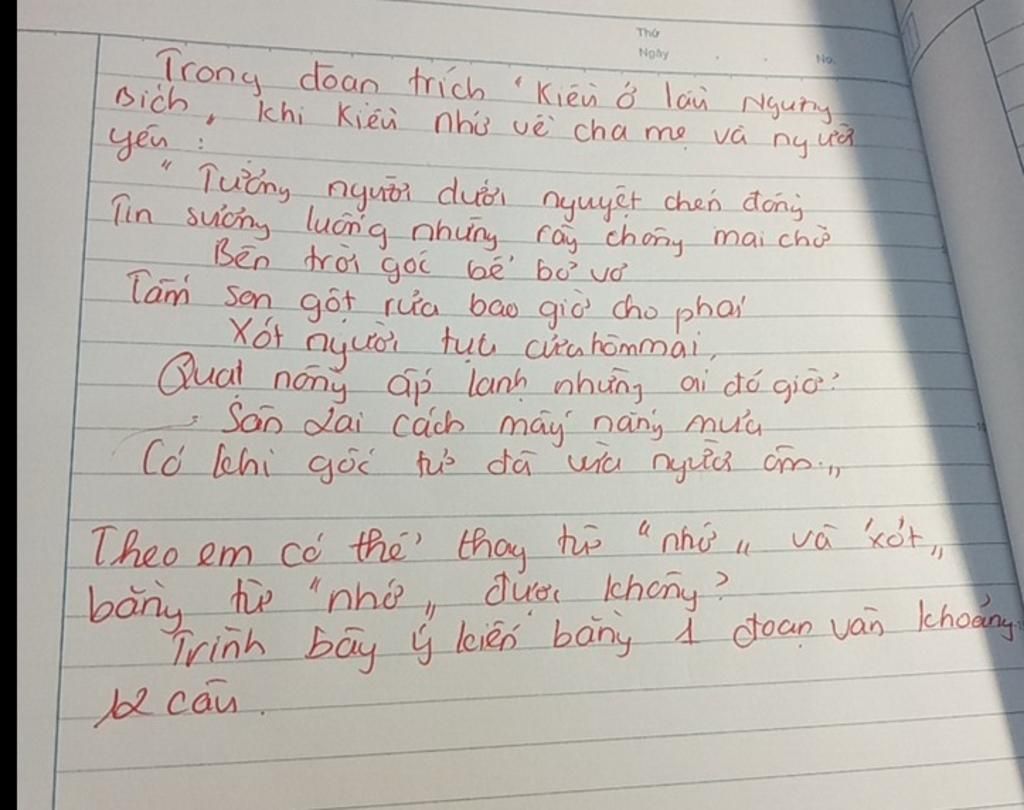 Thứ
Ngày
No.
Trong đoạn trích "Kiều ở lầu Ngưng
Bích, khi Kiều nhớ về cha mẹ và người
yêu:
"Tưởng người dưới nguyệt chén đồng
Tin sương luống những rày chông mai chờ
Bên trời góc bể bơ vơ
Tấm son gột rửa bao giờ cho phai
Xót người tựa cửa hôm mai,
Quạt nồng ấp lạnh những ai đó giờ?
Sân Lai cách mấy nắng mưa
Có khi gốc tử đã vừa người ôm."
Theo em có thể thay từ "nhớ" và "xót"
bằng từ "nhớ" được không?
Trình bày ý kiến bằng 1 đoạn văn khoảng
12 câu.